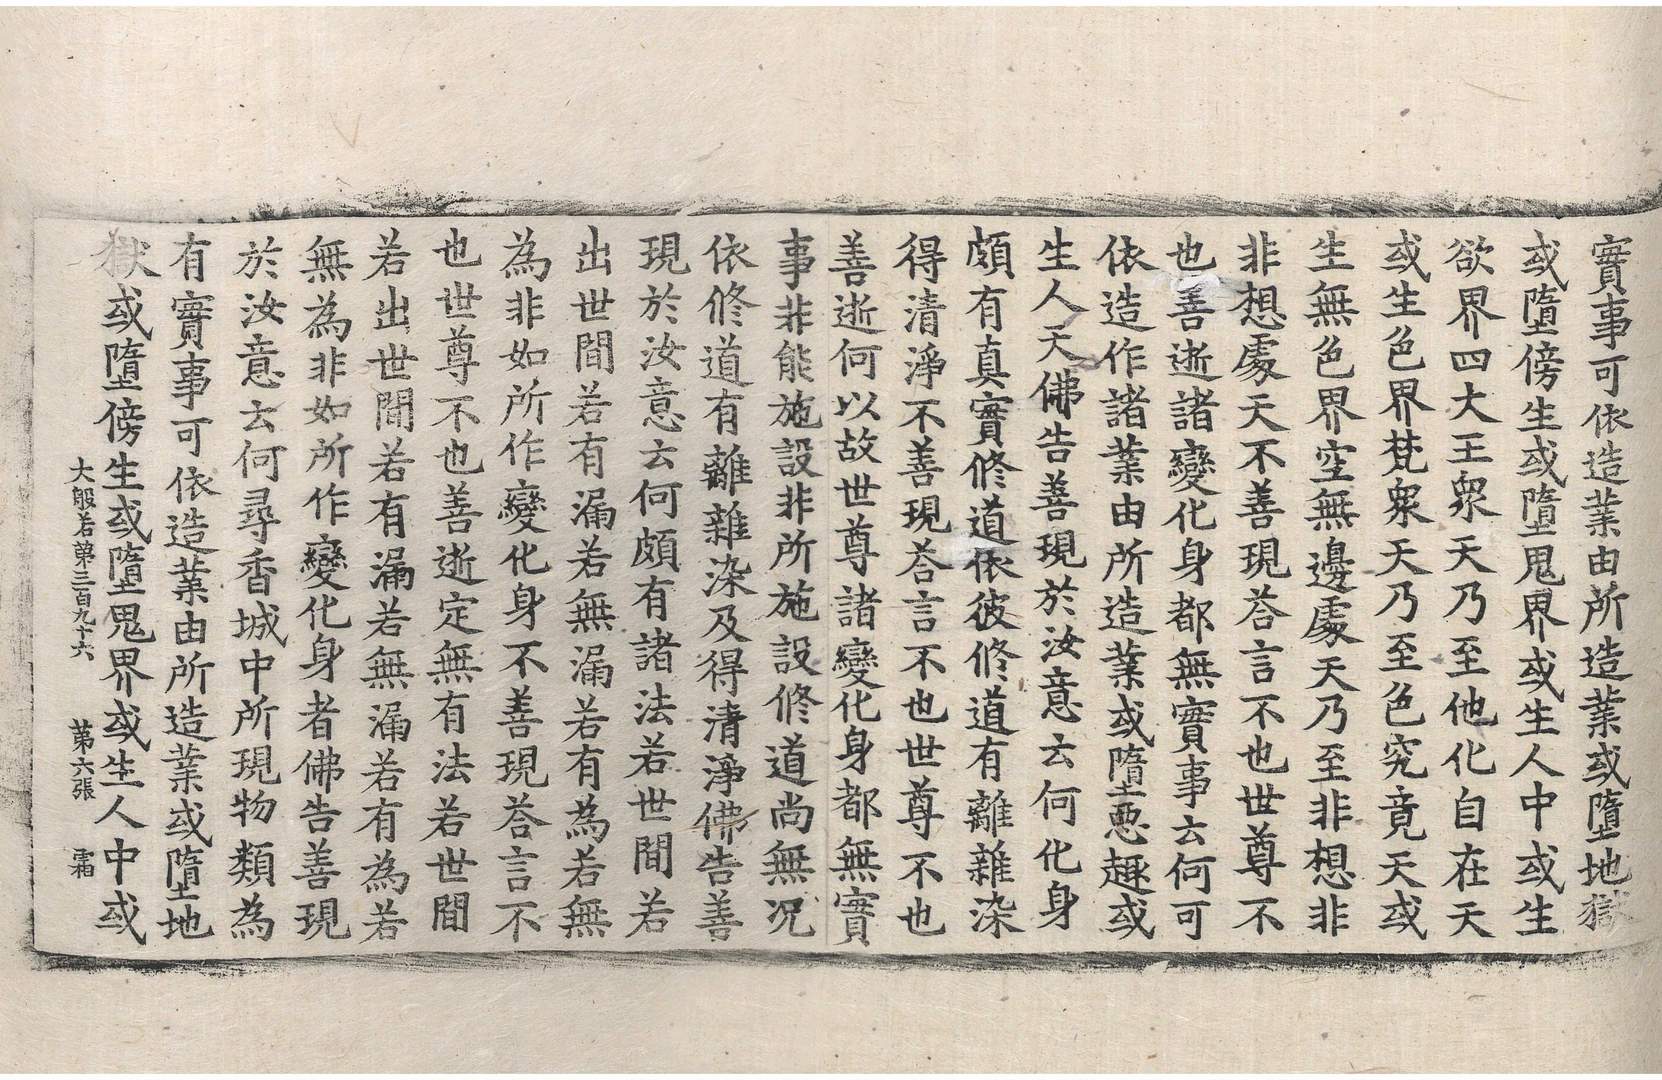 實事可依造業由所造業或墮地獄
或墮傍生或墮鬼界或生人中或生
欲界四大王衆天乃至他化自在天
或生色界梵衆天乃至色究竟天或
生無色界空無邊處天乃至非想非
非想處天不善現荅言不也世尊不
也善逝諸變化身都無實事云何可
依造作諸業由所造業或墮惡趣或
生人天佛告善現於汝意云何化身
頗有真實修道依彼修道有離雜染
得清淨不善現荅言不也世尊不也
善逝何以故世尊諸變化身都無實
事非能施設非所施設修道尚無况
依修道有離雜染及得清淨佛告善
現於汝意云何頗有諸法若世間若
出世間若有漏若無漏若有為若無
為非如所作變化身不善現荅言不
也世尊不也善逝定無有法若世間
若出世間若有漏若無漏若有為若
無為非如所作變化身者佛告善現
於汝意云何尋香城中所現物類為
有實事可依造業由所造業或墮地
獄或墮傍生或墮鬼界或生人中或
大般若第三百九十六 第六張 霜